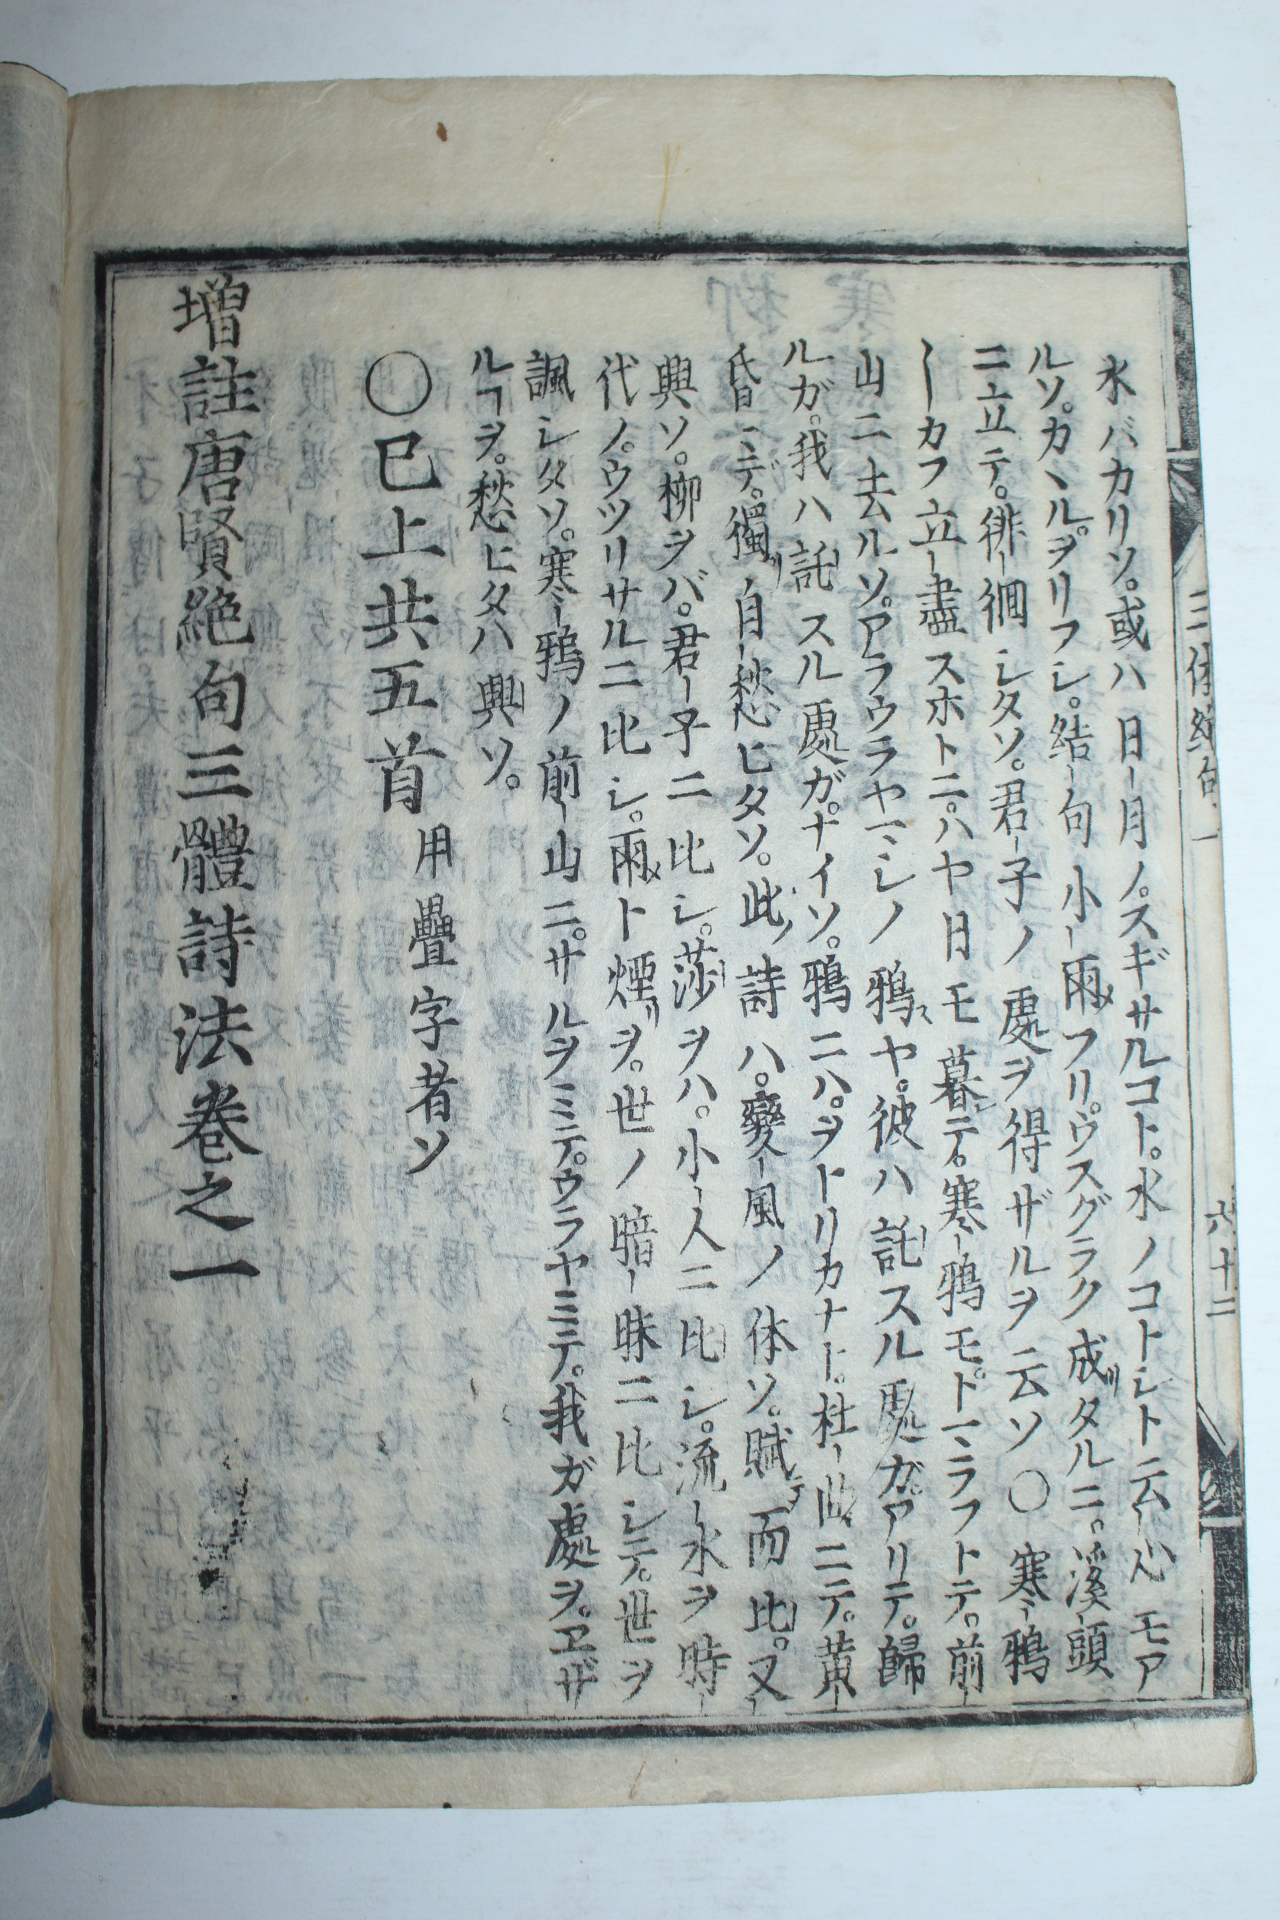 水バカリソ。或ハ日ー月ノ。スギサルコト。水ノコトレト云ー心モア
ルソ。カヽル。ヲリフシ。結ー句小ー雨フリ。ウスグラク成タルニ。溪ー頭
ニ立テ。徘ー徊シタソ。君ー子ノ處ヲ得ザルヲ云ソ〇寒ー鴉
ーカフ立ー盡スホトニ。ハヤ日モ暮テ。寒ー鴉モ。ド一ミラフトテ。前ー
山ニ去ルソ。アラウラヤマシノ鴉ヤ。彼ハ託スル處ガ。アリテ。歸
ルガ。我ハ託スル處ガ。ナイソ。鴉ニハ。ヲトリカナト。杜ー曲ニテ。黄ー
昏ニ。獨自ー愁ヒタソ。此ノ詩ハ。變ー風ノ体ソ。賦而比。又ー
興ソ。柳ヲバ。君ー子ニ比シ。莎ヲハ。小ー人ニ比シ。流ー水ヲ時ー
代ノ。ウツリサルニ比シ。雨ト煙ヲ。世ノ暗ー昧ニ比シテ。世ヲ
諷シタソ。寒ー鴉ノ前ー山ニ。サルヲミテ。ウラヤミテ。我ガ處ヲ。ヱザ
ルヿヲ。愁ヒタハ興ソ。
〇已上共五首 用疊字者ソ
増註唐賢絶句三體詩法卷之一
三体絶句一
六十二